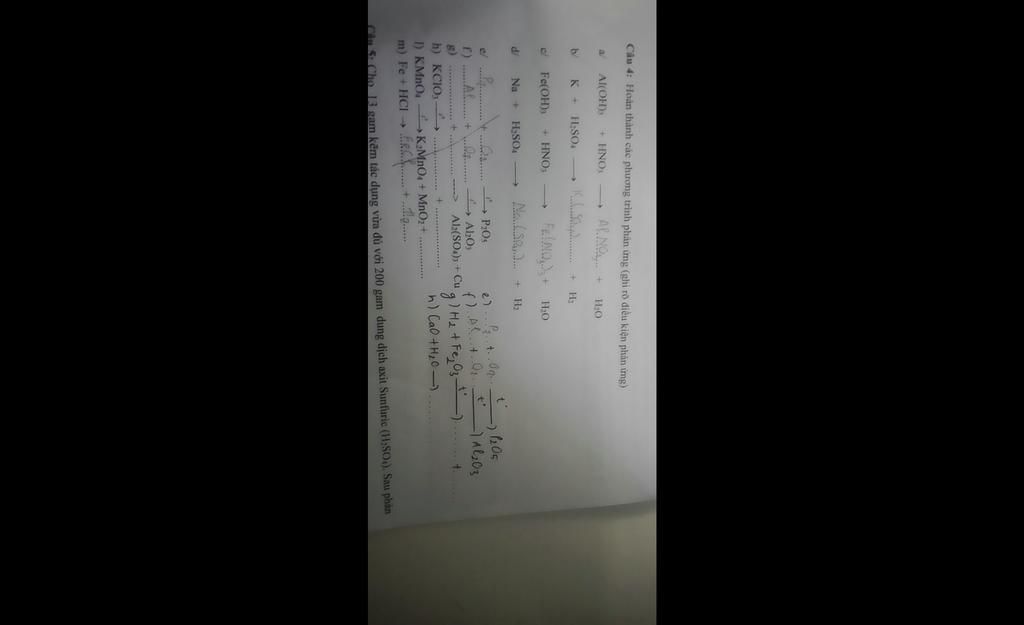 Câu 4: Hoàn thành các phương trình phản ứng (ghi rõ điều kiện phản ứng)
a/ Al(OH)₃ + HNO₃ ⟶ Al.NO₃... + H₂O
b/ K + H₂SO₄ ⟶ K.(SO₄)............ + H₂
c/ Fe(OH)₃ + HNO₃ ⟶ Fe(NO₃)₃ + H₂O
d/ Na + H₂SO₄ ⟶ Na.(SO₄)... + H₂
e/ ....P₂.......... + ...O₂...... t° ⟶ P₂O₅
f) ......Al....... + ..O₂........ t° ⟶ Al₂O₃
g) .................. + ............. ---> Al₂(SO₄)₃ + Cu
h) KClO₃ t° ⟶ ................. + .................
l) KMnO₄ t° ⟶ K₂MnO₄ + MnO₂ + .............
m) Fe + HCl → ............ + ...........
e) ...P₂.. + ..O₂.. t° ⟶ P₂O₅
f) .Al... + ..O₂.. t° ⟶ Al₂O₃
g) H₂ + Fe₂O₃ t° ⟶ ........ + ........
h) CaO + H₂O ⟶ ........
Câu 5: Cho 13 gam kẽm tác dụng vừa đủ với 200 gam dung dịch axit Sunfuric (H₂SO₄). Sau phản